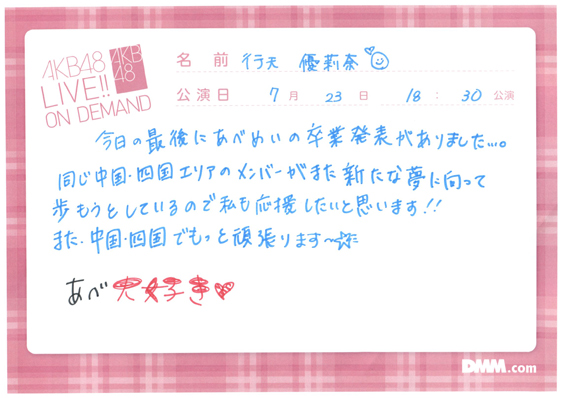 AKB48
LIVE!!
ON DEMAND
AKB
48
名前 行天 優莉奈
公演日 7月 23日 18:30公演
今日の最後にあべめいの卒業発表がありました...。
同じ中国・四国エリアのメンバーがまた新たな夢に向って
歩もうとしているので私も応援したいと思います!!
また、中国・四国でもっと頑張ります〜☆
あべ大好き♡
DMM.com